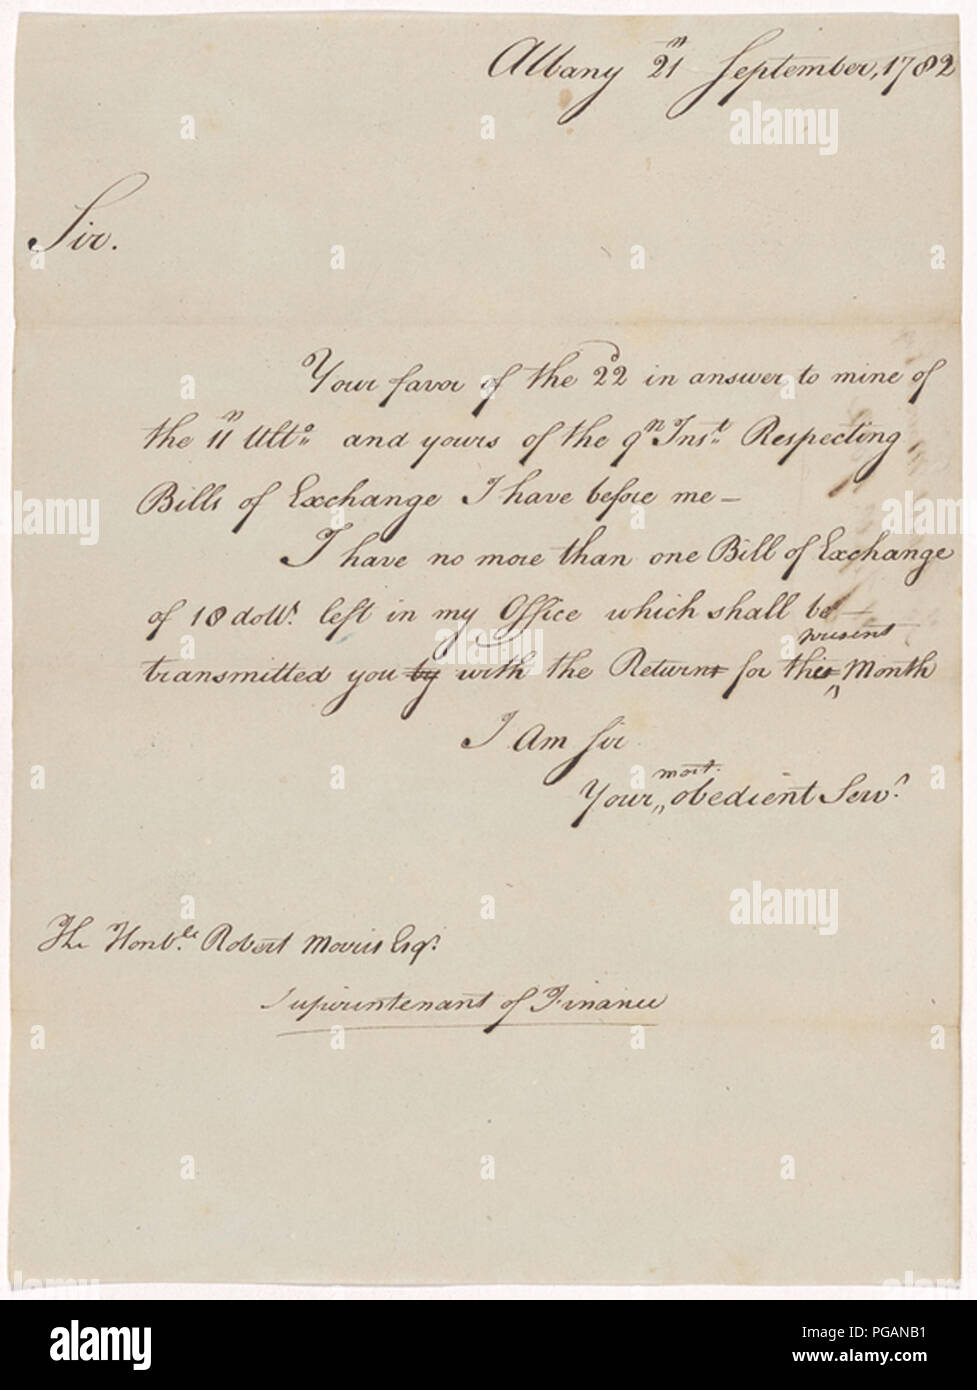 Albany 21n September, 1782
Sir.
Your favor of the 22d in answer to mine of
the 11n Ulto. and yours of the 9n Inst. Respecting
Bills of Exchange I have before me —
I have no more than one Bill of Exchange
of 18 dolls. left in my Office which shall be —
present
transmitted you by with the Returns for this Month
I Am Sir
most
Your obedient Servt.
The Honble. Robert Morris Esqr.
Superintenant of Finance
alamy
a
alamy
Image ID: PGANB1
www.alamy.com